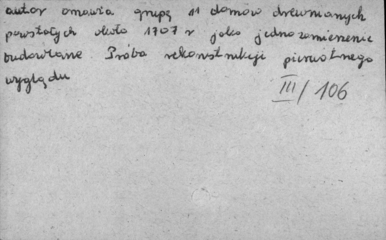 autor omawia grupę 11 domów drewnianych
powstałych około 1707 r jako jedno zamierzenie
budowlane Próba rekonstrukcji pierwotnego
wyglądu
III/106